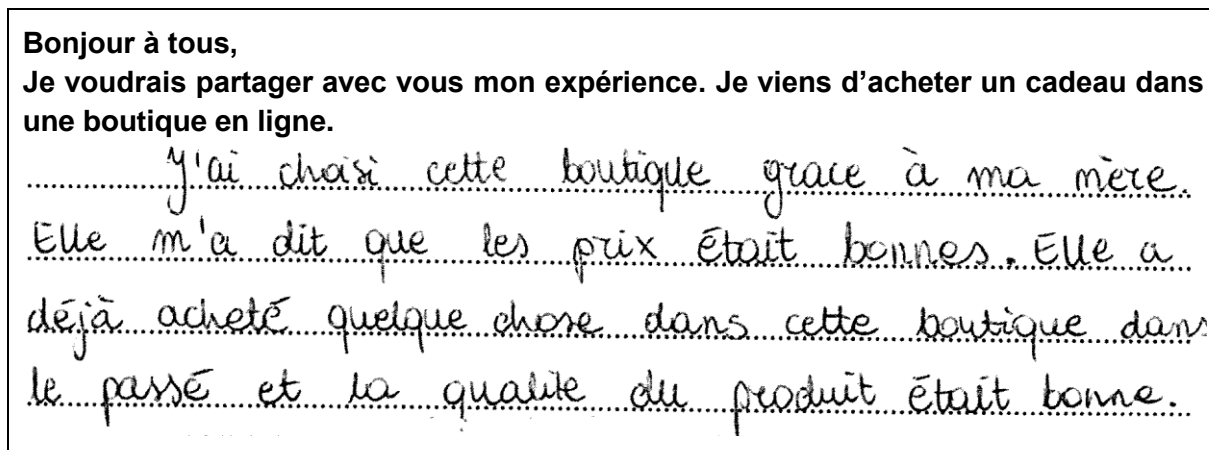 Bonjour à tous,
Je voudrais partager avec vous mon expérience. Je viens d’acheter un cadeau dans
une boutique en ligne.
J'ai choisi cette boutique grace à ma mère.
Elle m'a dit que les prix était bonnes. Elle a
déjà acheté quelque chose dans cette boutique dans
le passé et la qualite du produit était bonne.